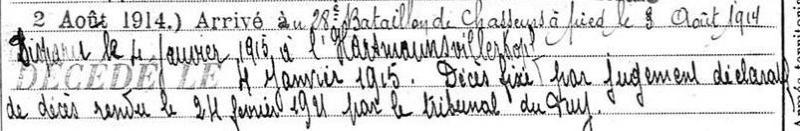 2 Août 1914.) Arrivé au 28e Bataillon de Chasseurs à pied le 3 Août 1914
Disparu le 4 janvier 1915 à l'Hartmannsvillerkopf
DÉCÉDÉ LE 4 Janvier 1915. Décès fixé par jugement déclaratif
de décès rendu le 24 février 1921 par le tribunal du Puy.